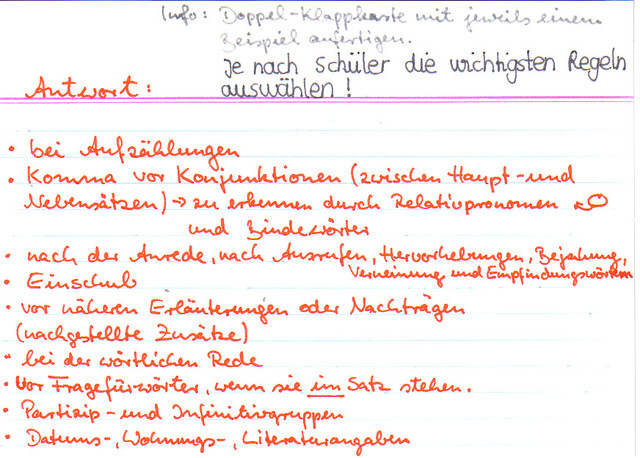 Info: Doppel-Klappkarte mit jeweils einem
Beispiel anfertigen.
Je nach Schüler die wichtigsten Regeln
Antwort: auswählen!
• bei Aufzählungen
• Komma vor Konjunktionen (zwischen Haupt- und
Nebensätzen) → zu erkennen durch Relativpronomen
und Bindewörter
• nach der Anrede, nach Ausrufen, Hervorhebungen, Bejahung,
Verneinung und Empfindungswörtern
• Einschub
• vor näheren Erläuterungen oder Nachträgen
(nachgestellte Zusätze)
• bei der wörtlichen Rede
• Vor Fragefürwörter, wenn sie im Satz stehen.
• Partizip- und Infinitivgruppen
• Datums-, Wohnungs-, Literaturangaben